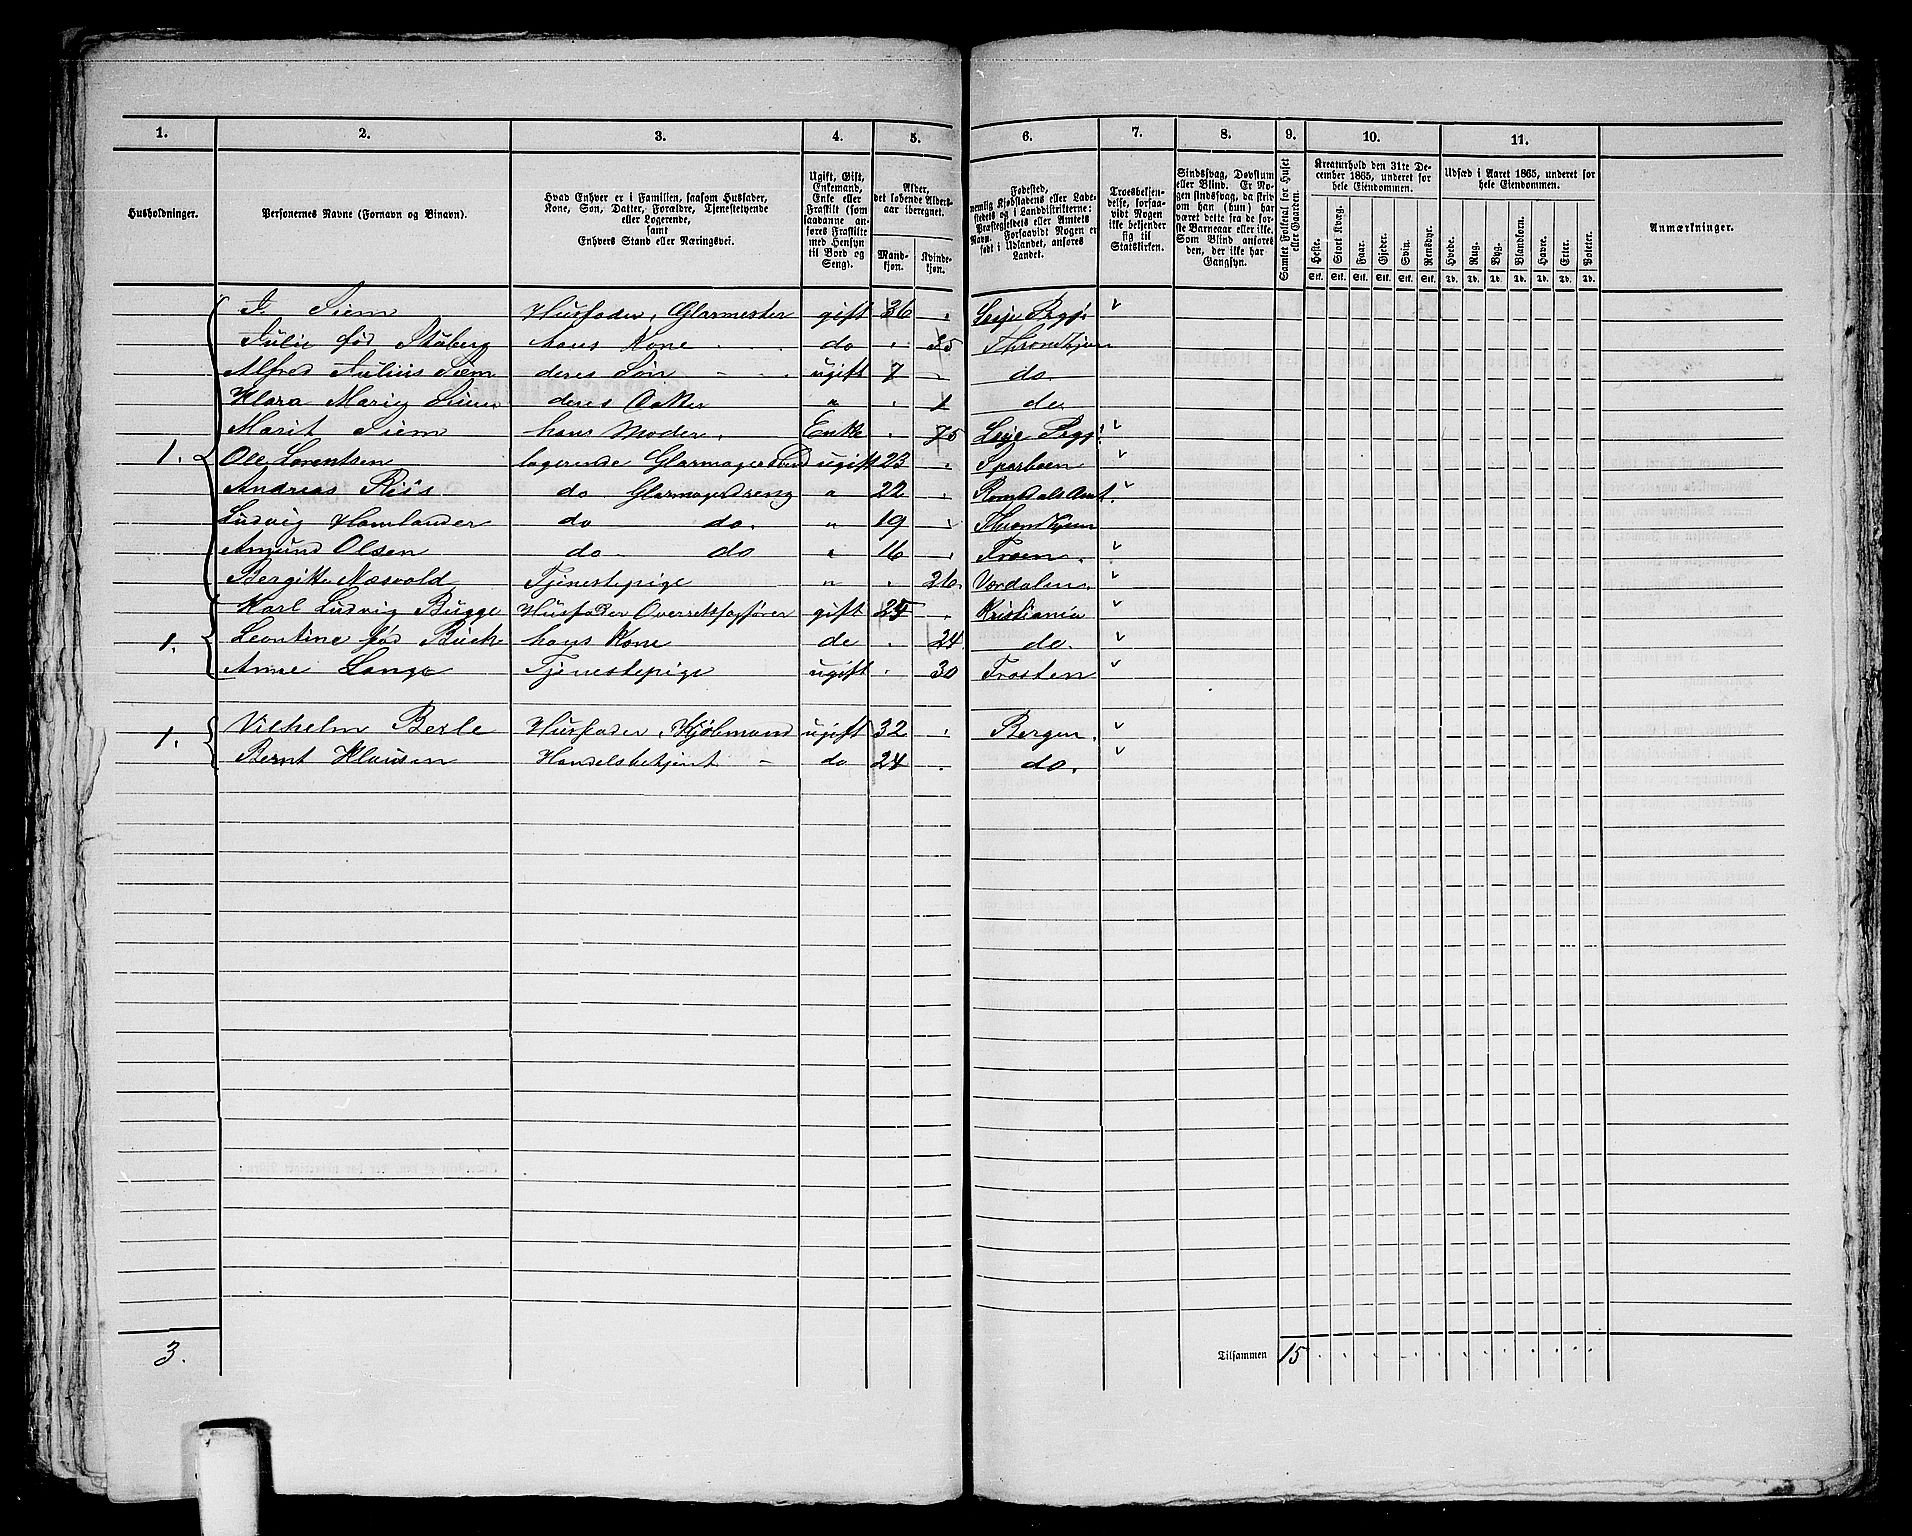 1. 2. 3. 4. 5. 6. 7. 8. 9. 10. 11.
Husholdninger.
Personernes Navne (Fornavn og Binavn).
Hvad Enhver er i Familien, saasom Husfader, Kone, Søn, Datter, Forældre, Tjenestetyende eller Logerende, samt Enhvers Stand eller Næringsvei.
Ugift, Gift, Enkemand, Enke eller Fraskilt (som saadanne anføres Fraskilte med Hensyn til Bord og Seng).
Alder, det løbende Aldersaar iberegnet.
Mandkjøn. Kvindekjøn.
Fødested, nemlig Kjøbstadens eller Ladestedets og i Landdistrikterne: Præstegjeldets eller Amtets Navn. Forsaavidt Nogen er født i Udlandet, anføres Landet.
Troesbekjendelse, forsaavidt Nogen ikke bekjender sig til Statskirken.
Sindssvag, Døvstum eller Blind. Er Nogen sindssvag, da skriv om han (hun) har været dette fra de første Barneaar eller ikke. Som Blind anføres den, der ikke har Gangsyn.
Samlet Folketal for Huset eller Gaarden.
Kreaturhold den 31te December 1865, underet for hele Eiendommen.
Heste. Stort Kvæg. Faar. Gjeder. Svin. Rensdyr.
Stk. Stk. Stk. Stk. Stk. Stk.
Udsæd i Aaret 1865, underet for hele Eiendommen.
Hvede. Rug. Byg. Blandkorn. Havre. Erter. Poteter.
Td. Td. Td. Td. Td. Td. Td.
Anmærkninger.
J. Siem Husfader, Glarmester gift 36 Lesje Prgj
Julie fød Stuberg hans Kone do 35 Throndhjem
Alfred Julius Siem deres Søn ugift 7 do
Klara Marie Siem deres Datter " 1 do
Marit Siem hans Moder. Enke 75 Lesje Prgj.
1. Ole Lorentsen logerende Glarmagersvend ugift 23 Sparboen
Andreas Riis do Glarmagerdreng " 22 Romsdals Amt.
Ludvig Hamlander do do. " 19 Throndhjem
Amund Olsen do do " 16
Bergitte Næsvold Tjenestepige " 26. Værdalen
Karl Ludvig Bugge Husfader Overretssagfører gift 25 Kristiania
1. Leontine fød Buch hans Kone do 24 do.
Anne Lange Tjenestepige ugift 30 Frosten
1. Vilhelm Berle Husfader, Kjøbmand ugift 32 Bergen.
Bernt Klausen Handelsbetjent do 24 do.
3. Tilsammen 15